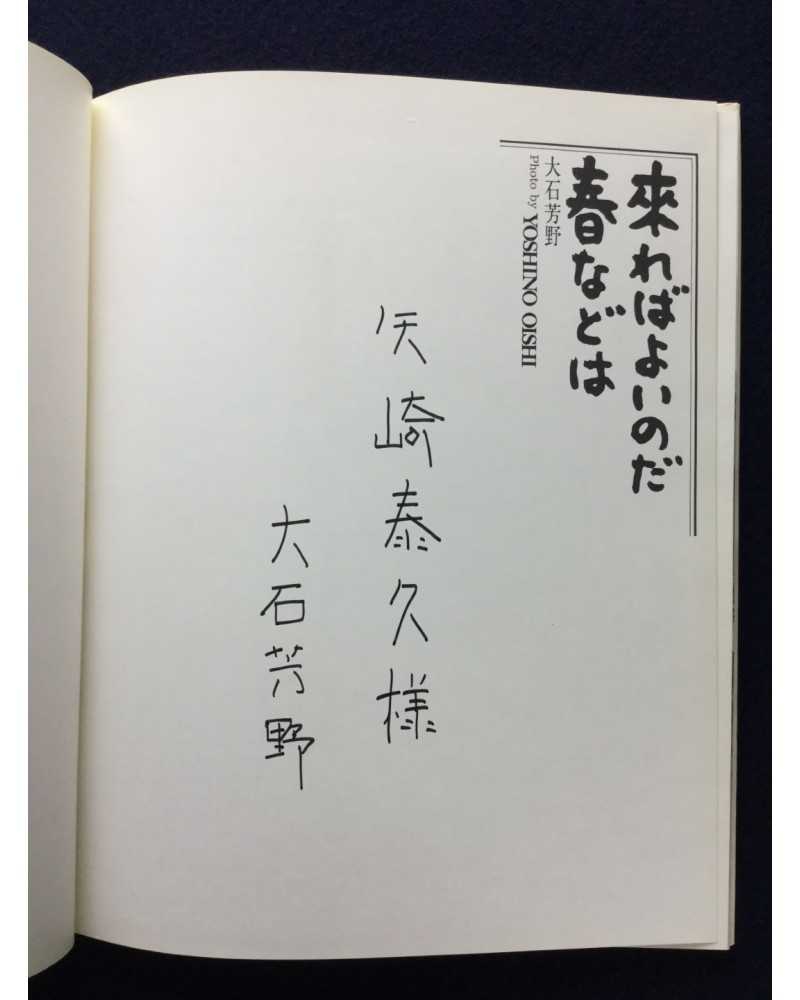 來ればよいのだ
春などは
大石芳野
Photo by YOSHINO OISHI
矢崎泰久様
大石芳野